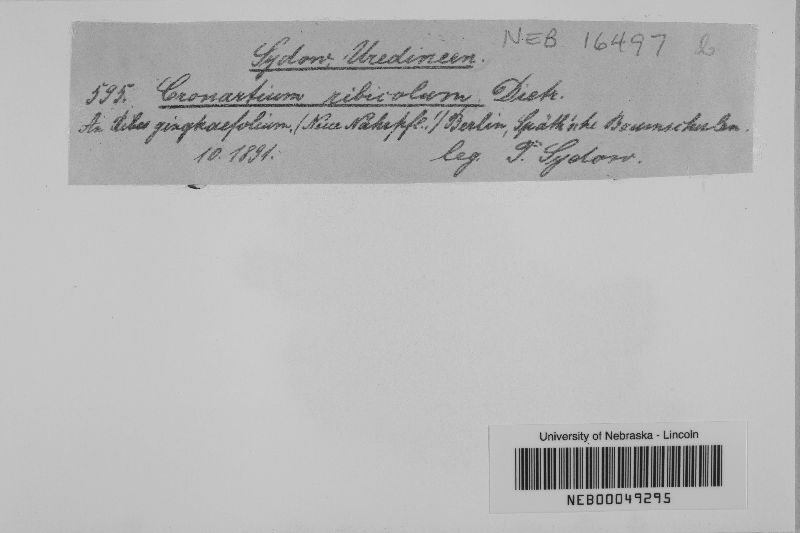 Sydow, Uredineen.
NEB 16497 b
595. Cronartium ribicolum Dietr.
An Ribes gingkaefolium. (Neue Nährpfl.!) Berlin, Späth'sche Baumschulen.
10. 1891. leg. P. Sydow.
University of Nebraska - Lincoln
NEB00049295